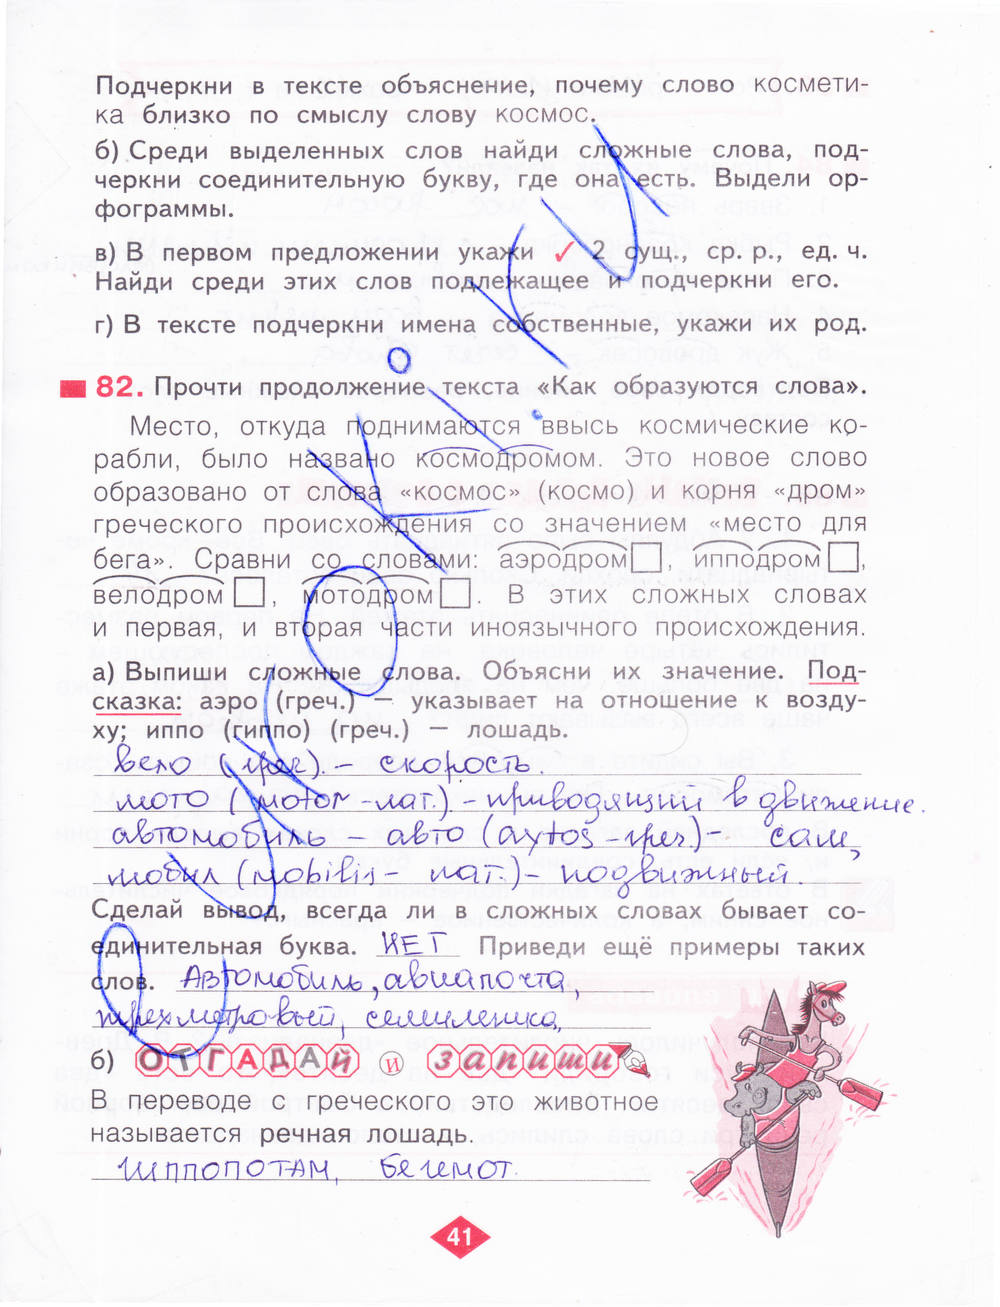 Подчеркни в тексте объяснение, почему слово космети-
ка близко по смыслу слову космос.
б) Среди выделенных слов найди сложные слова, под-
черкни соединительную букву, где она есть. Выдели ор-
фограммы.
в) В первом предложении укажи ✓ 2 сущ., ср. р., ед. ч.
Найди среди этих слов подлежащее и подчеркни его.
г) В тексте подчеркни имена собственные, укажи их род.
82. Прочти продолжение текста «Как образуются слова».
Место, откуда поднимаются ввысь космические ко-
рабли, было названо космодромом. Это новое слово
образовано от слова «космос» (космо) и корня «дром»
греческого происхождения со значением «место для
бега». Сравни со словами: аэродром , ипподром ,
велодром , мотодром . В этих сложных словах
и первая, и вторая части иноязычного происхождения.
а) Выпиши сложные слова. Объясни их значение. Под-
сказка: аэро (греч.) — указывает на отношение к возду-
ху; иппо (гиппо) (греч.) — лошадь.
вело (греч.) - скорость.
мото (motor-лат.) - приводящий в движение.
автомобиль - авто (aytos-греч.) - сам,
мобил (mobilis - лат.) - подвижный
Сделай вывод, всегда ли в сложных словах бывает со-
единительная буква. НЕТ Приведи ещё примеры таких
слов. Автомобиль, авиапочта,
трехметровый, семилетка,
б) ОТГАДАЙ и запиши
В переводе с греческого это животное
называется речная лошадь.
Гиппопотам, бегемот.
41